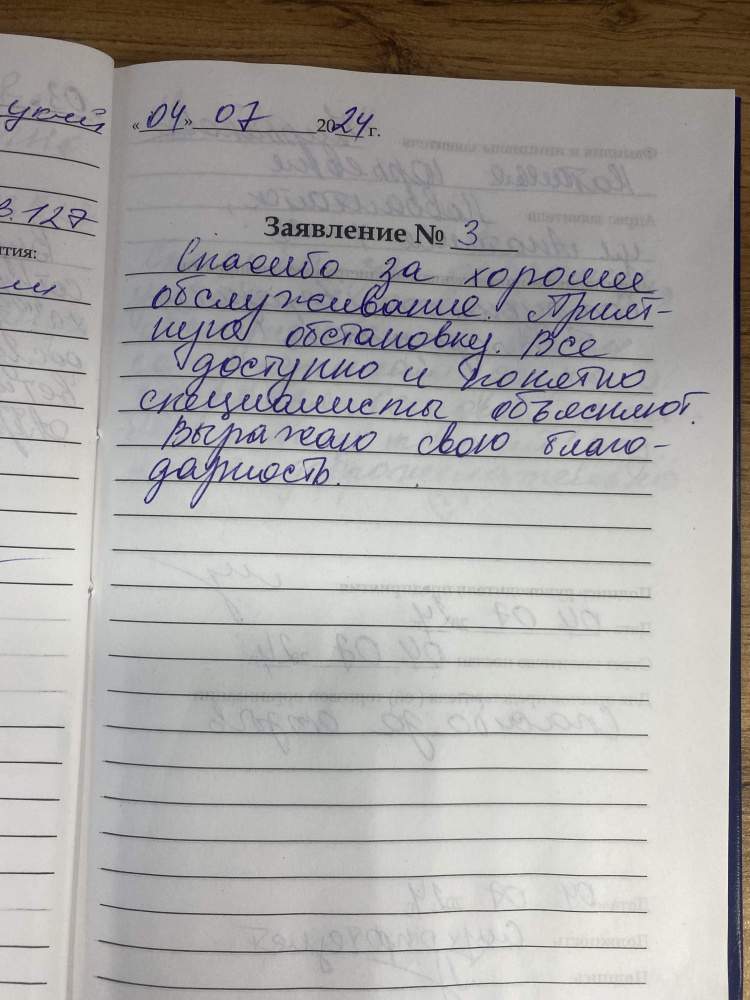 «04» 07 2024 г.
Заявление № 3
Спасибо за хорошее
обслуживание. Прият-
ную обстановку. Все
доступно и понятно
специалисты объясняют.
Выражаю свою благо-
дарность.
127
тия: